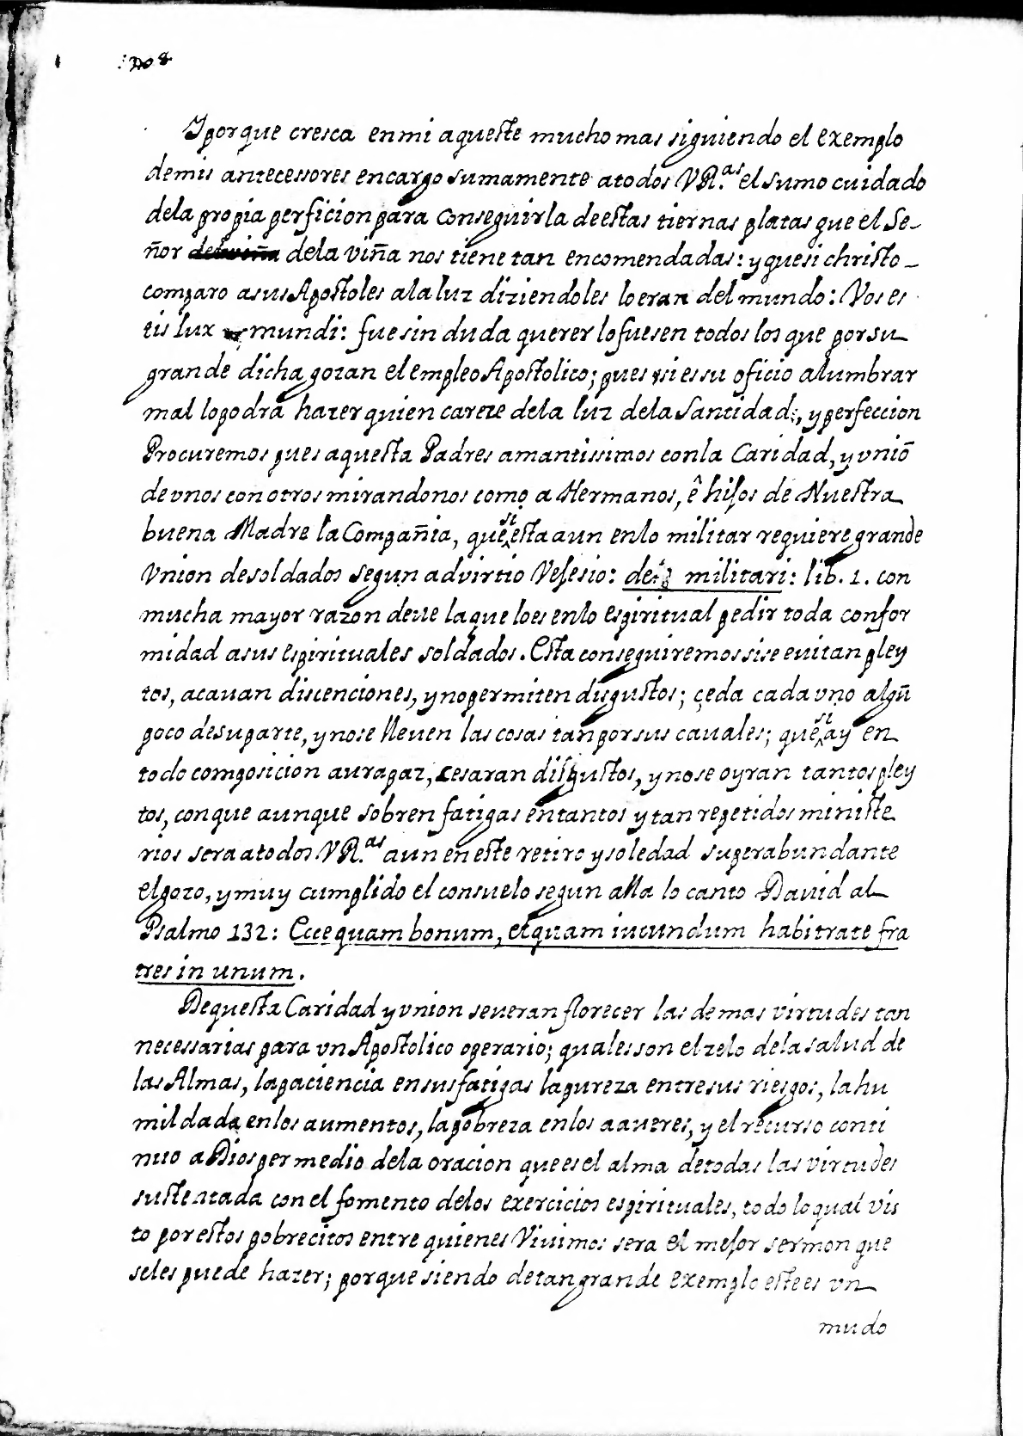 Yporque cresca en mi aqueste mucho mas siguiendo el exemplo
de mis antecessores encargo sumamente a todos VR.as el sumo cuidado
de la propia perficion para conseguirla de estas tiernas platas que el Se-
ñor de la viña de la viña nos tiene tan encomendadas: y que si christo-
comparo a sus Apostoles a la luz diziendoles lo eran del mundo: Vos es
tis lux mundi: fue sin duda querer lo fuesen todos los que por su
grande dicha gozan el empleo Apostolico; pues si es su oficio alumbrar
mal lo podrà hazer quien careze de la luz de la Santidad, y perfeccion
Procuremos pues aquesta Padres amantissimos con la Caridad, y vniō
de vnos con otros mirandonos como a Hermanos, ê hijos de Nuestra
buena Madre la Compañia, que si esta aun en lo militar requiere grande
Vnion de soldados segun advirtio Vejesio: de militari: lib. 1. con
mucha mayor razon deve la que lo es en lo espiritual pedir toda confor
midad a sus espirituales soldados. Esta conseguiremos si se evitan pley
tos, acavan discenciones, y no permiten disgustos; çeda cada vno algū
poco de su parte, y no se lleven las cosas tan por sus cavales; que si ay en
todo composicion avra paz, cesaran disgustos, y no se oyran tantos pley
tos, con que aunque sobren fatigas en tantos y tan repetidos ministe
rios sera a todos VR.as aun en este retiro y soledad superabundante
el gozo, y muy cumplido el consuelo segun alla lo canto David al
Psalmo 132: Ecce quam bonum, et quam iucundum habitrate fra
tres in unum.
Dequesta Caridad y vnion se veran florecer las demas virtudes tan
necessarias para vn Apostolico operario; quales son el zelo de la salud de
las Almas, la paciencia en sus fatigas la pureza entre sus riesgos, la hu
mildad en los aumentos, la pobreza en los averes, y el recurso conti
nuo a Dios per medio de la oracion que es el alma de todas las virtudes
sustentada con el fomento de los exercicios espirituales, todo lo qual vis
to por estos pobrecitos entre quienes Vivimos sera el mejor sermon que
se les puede hazer; porque siendo de tan grande exemplo este es vn
mudo